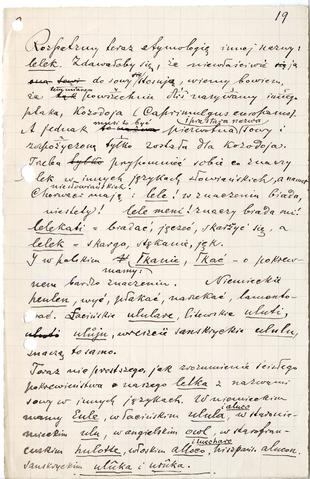 19
Rozpatrzmy teraz etymologię innej nazwy:
lelek. Zdawałoby się, że niewłaściwie się ją
do sowy stosuje, wiemy bowiem,
że powszechnie dziś nazywamy innego
ptaka, Kozodoja (Caprimulgus europaeus).
A jednak musi to być pierwotna i prastara nazwa sowy i
zapożyczoną tylko została dla kozodoja.
Trzeba przypomnieć sobie co znaczy
lek w innych językach słowiańskich, a nawet
niesłowiańskich! Chorwaci mają: lele! w znaczeniu biada,
niestety! lele meni! znaczy biada mi!
lelekati = biadać, jęczeć, skarżyć się, a
lelek = skarga, stękanie, jęk.
I w polskim mamy: łkanie, łkać – o pokrew-
nem bardzo znaczeniu. Niemieckie
heulen, wyć, płakać, narzekać, lamento-
wać. Łacińskie ululare, litewskie uluti,
ulůju, wreszcie sanskryckie ululu,
znaczą to samo.
Teraz nic prostszego, jak zrozumienie ścisłego
pokrewieństwa naszego lelka z nazwami
sowy w innych językach. W niemieckim
mamy Eule, w łacińskim ulula, aluco w staronie-
mieckim ulu, w angielskim owl, w starofran-
cuskim hulotte, i huchare włoskim allocco, hiszpańs. alucon.
Sanskryckie uluka i uruka.